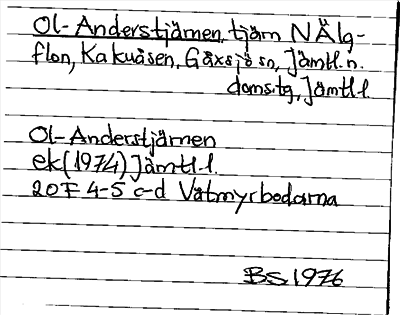 Ol-Anderstjärnen, tjärn N Älg-
flon, Kakuåsen, Gåxsjö sn, Jämtl. n.
doms.tg, Jämtl. l.
Ol-Anderstjärnen
ek (1974) Jämtl. l.
20F 4-5 c-d Våtmyrbodarna
BS 1976